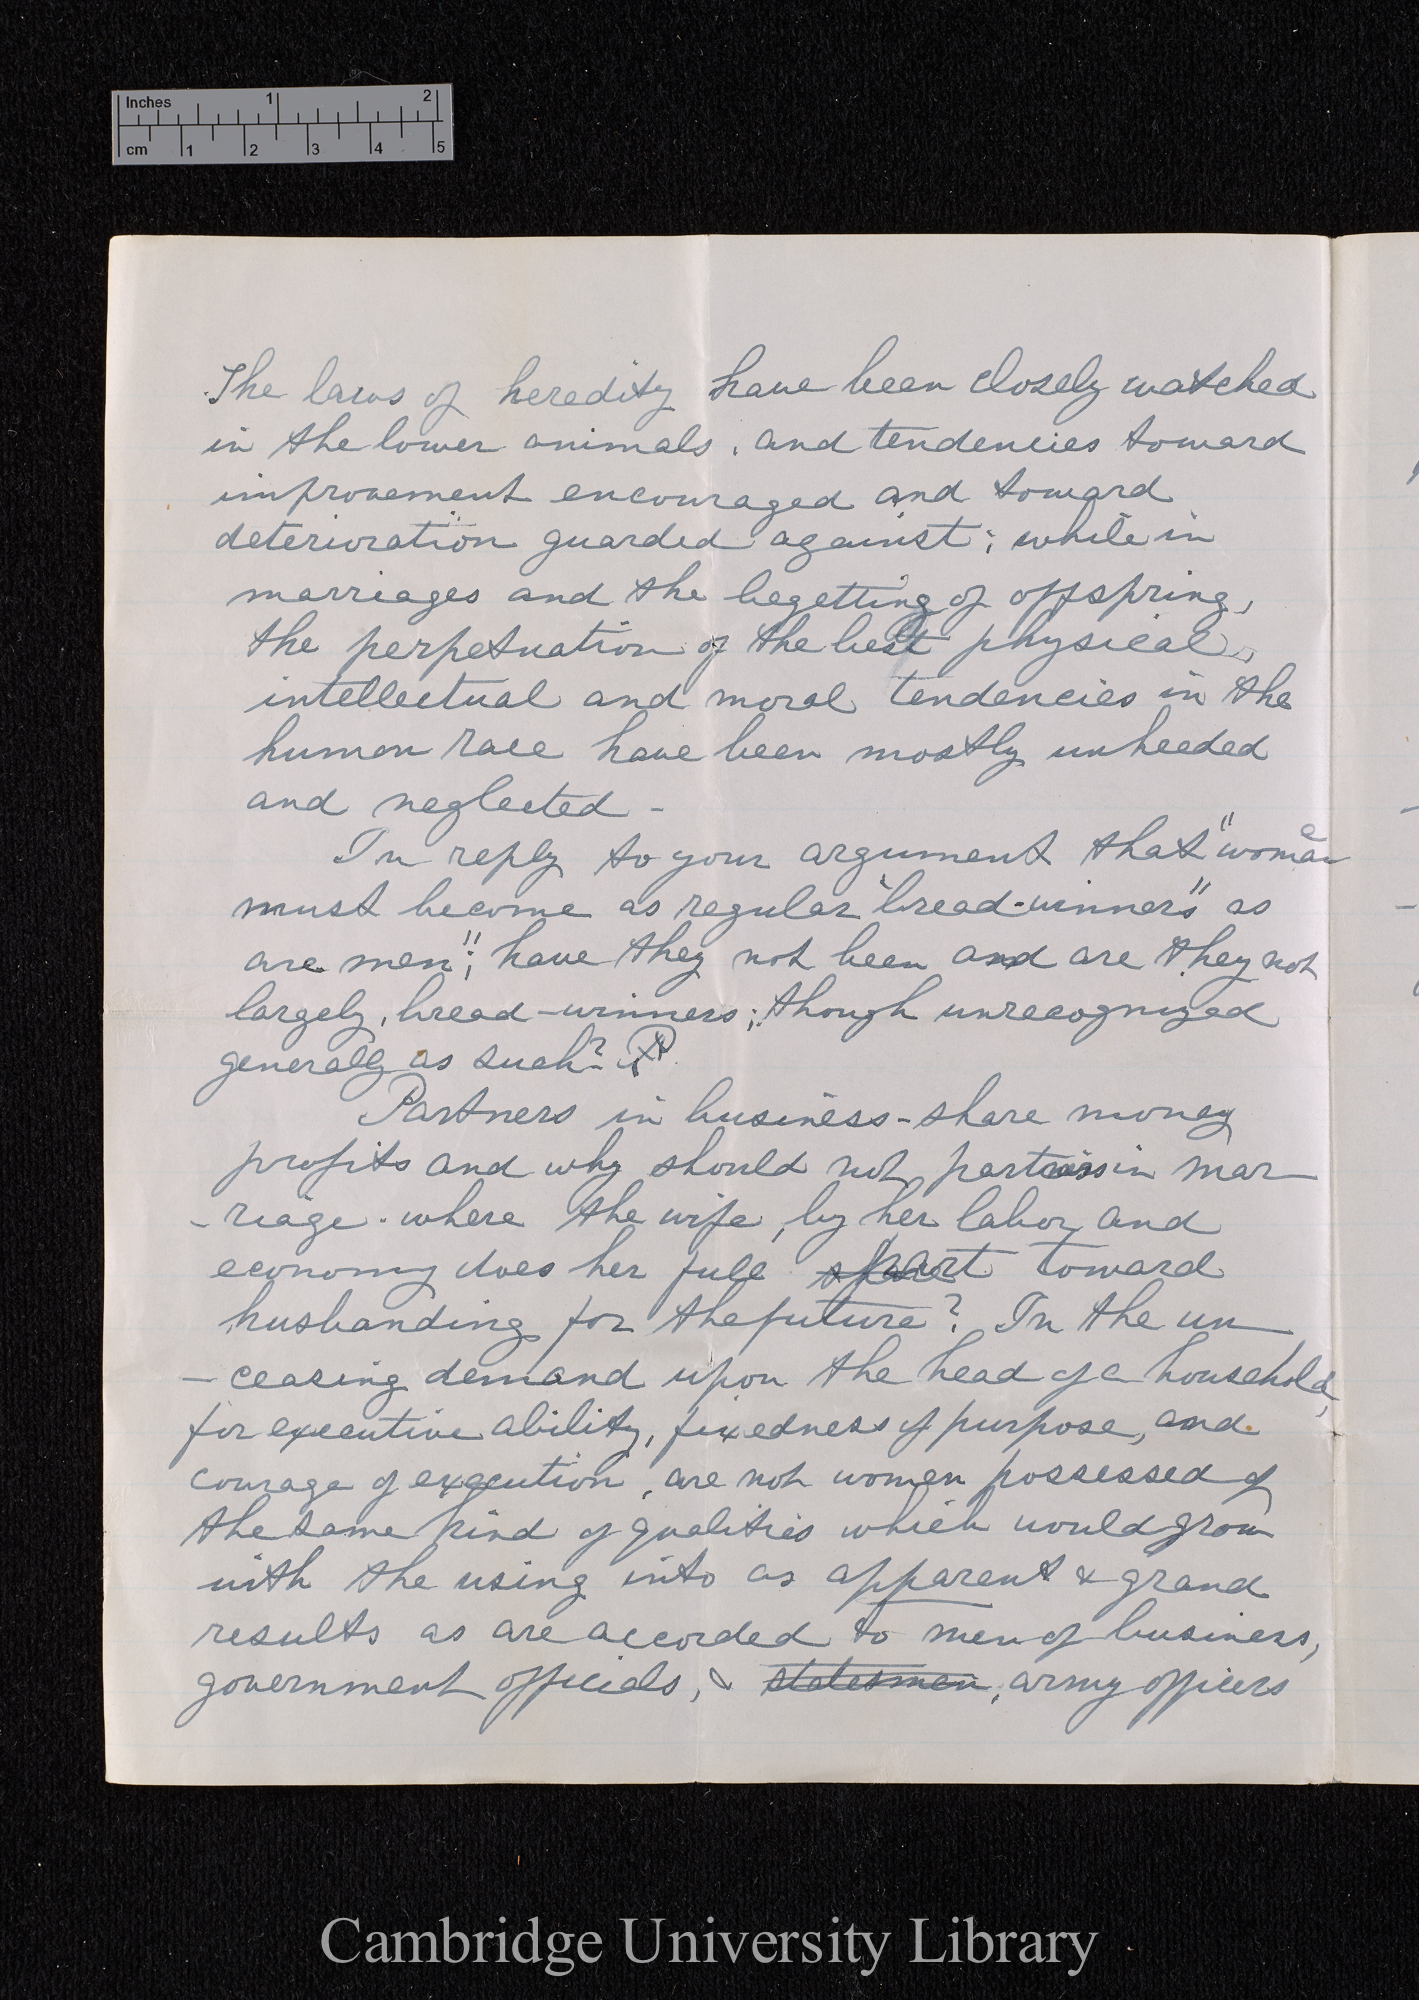 Inches 1 2
cm 1 2 3 4 5
The laws of heredity have been closely watched
in the lower animals, and tendencies toward
improvement encouraged and toward
deterioration guarded against; while in
marriages and the begetting of offspring,
the perpetuation of the best physical,
intellectual and moral tendencies in the
human race have been mostly unheeded
and neglected -
In reply to your argument that "women
must become as regular "bread-winners" as
are men"; have they not been and are they not
largely, bread-winners; though unrecognized
generally as such?
Partners in business - share money
profits and why should not partners in mar-
-riage - where the wife, by her labor and
economy does her full part toward
husbanding for the future? In the un-
-ceasing demand upon the head of a household,
for executive ability, fixedness of purpose, and
courage of execution, are not women possessed of
the same kind of qualities which would grow
with the using into as apparent & grand
results as are accorded to men of business,
government officials, & statesmen, army officers
Cambridge University Library